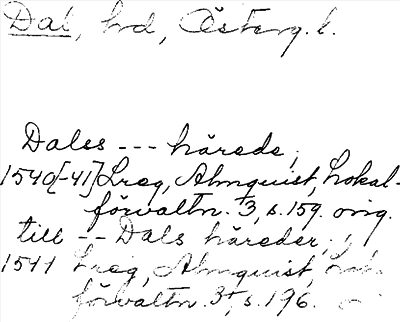 Dal, hd, Österg. l.
Dales --- härede,
1540[-41] Lreg, Almquist, Lokal-
förvaltn. 3, s. 159. orig.
till -- Dals häreder,
1541 Lreg, Almquist, Lok.
förvaltn. 3, s. 196.